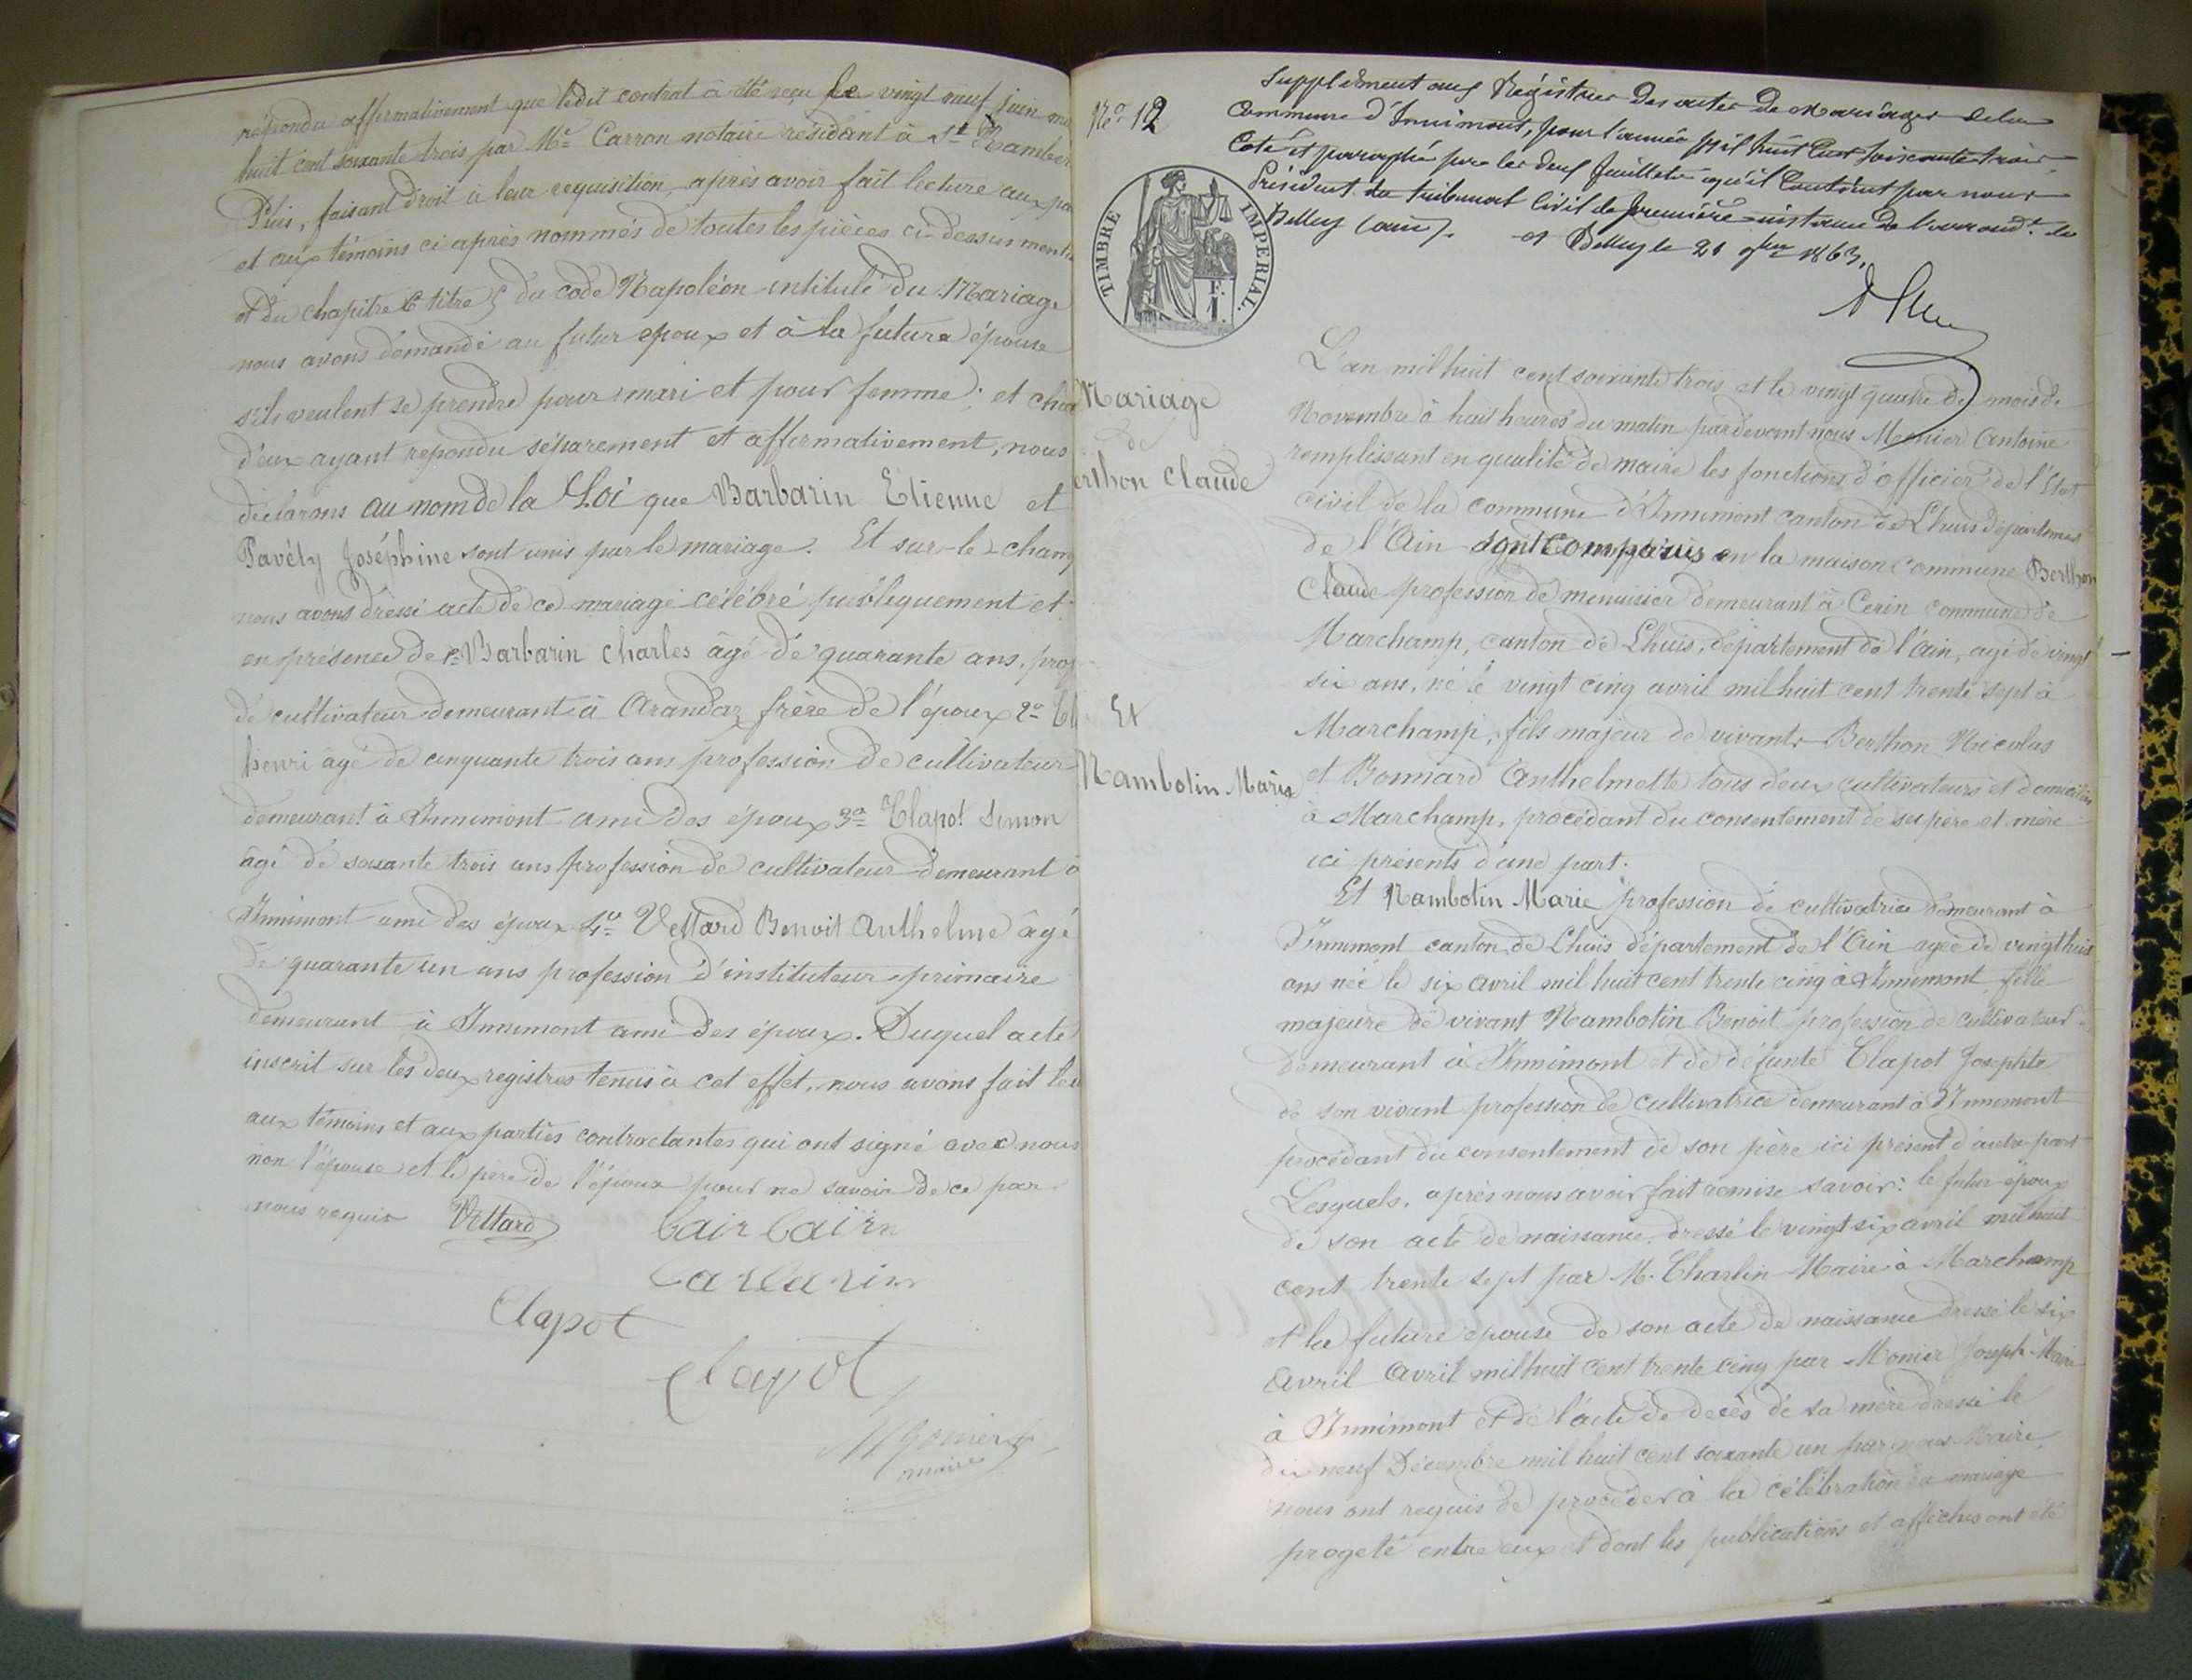 répondu affirmativement que ledit contrat à été reçu le vingt neuf juin mil
huit cent soixante trois par Me Carron notaire résidant à St Rambert
Puis, faisant droit à leur requisition, après avoir fait lecture aux pa
et aux témoins ci après nommés de toutes les pièces ci-dessus menti
et du chapitre 6 titre 5 du code Napoléon intitulé du Mariage
nous avons demandé au futur époux et à la future épouse
s'ils veulent se prendre pour mari et pour femme; et chac
d'eux ayant repondu séparement et affirmativement, nous
déclarons au nom de la Loi que Barbarin Etienne et
Pavély Joséphine sont unis par le mariage. Et sur-le-champ
nous avons dressé acte de ce mariage célébré publiquement et
en présence de 1o Barbarin Charles âgé de quarante ans, prof
de cultivateur demeurant à Arandaz frère de l'époux 2o Cl
henri âgé de cinquante trois ans profession de cultivateur
demeurant à Innimont ami des époux 3o Clapot Simon
âgé de soixante trois ans profession de cultivateur demeurant à
Innimont ami des époux 4o Vettard Benoit Anthelme âgé
de quarante un ans profession d'instituteur primaire
demeurant à Innimont ami des époux. Duquel acte
inscrit sur les deux registres tenus à cet effet, nous avons fait lec
aux témoins et aux parties contractantes qui ont signé avec nous
non l'épouse et le père de l'époux pour ne savoir de ce par
nous requis Vettard
barbarin
Clapot
Clapot
Monier
maire
No 12
Supplément aux Régistres des actes de Mariages de la
Commune d'Innimont, pour l'année mil huit Cent soixante trois,
Coté et paraphé par les deux feuillets qu'il Contient par nous
Président du tribunal Civil de première instance de l'arrondt. de
Belley (ain). Belley le 21 9bre 1863.
TIMBRE IMPERIAL.
F.
1
Mariage
de
erthon Claude
Et
Nambotin Marie
L'an mil huit cent soixante trois et le vingt quatre du mois de
Novembre à huit heures du matin pardevant nous Monier Antoine
remplissant en qualité de maire les fonctions d'officier de l'Etat
civil de la commune d'Innimont canton de Lhuis département
de l'Ain sont comparus en la maison commune Berthon
Claude profession de menuisier demeurant à Cerin commune de
Marchamp, canton de Lhuis, département de l'Ain, agé de vingt
six ans, né le vingt cinq avril mil huit cent trente sept à
Marchamp, fils majeur de vivants Berthon Nicolas
et Bonnard Anthelmette tous deux cultivateurs et domiciliés
à Marchamp, procédant du consentement de ses père et mère
ici présents d'une part.
Et Nambotin Marie profession de cultivatrice demeurant à
Innimont canton de Lhuis département de l'Ain agée de vingt huit
ans née le six avril mil huit cent trente cinq à Innimont fille
majeure de vivant Nambotin Benoit profession de cultivateur
demeurant à Innimont et de défunte Clapot Josephte
de son vivant profession de cultivatrice demeurant à Innimont
procédant du consentement de son père ici présent d'autre part
Lesquels, après nous avoir fait remise savoir: le futur époux
de son acte de naissance dressé le vingt six avril mil huit
cent trente sept par M. Charlin Maire à Marchamp
et la future épouse de son acte de naissance dressé le six
Avril Avril mil huit cent trente cinq par Monier Joseph Maire
à Innimont et de l'acte de décès de sa mère dressé le
dix neuf Décembre mil huit cent soixante un par nous Maire,
nous ont requis de procéder à la célébration du mariage
progeté entre eux et dont les publications et affiches ont été